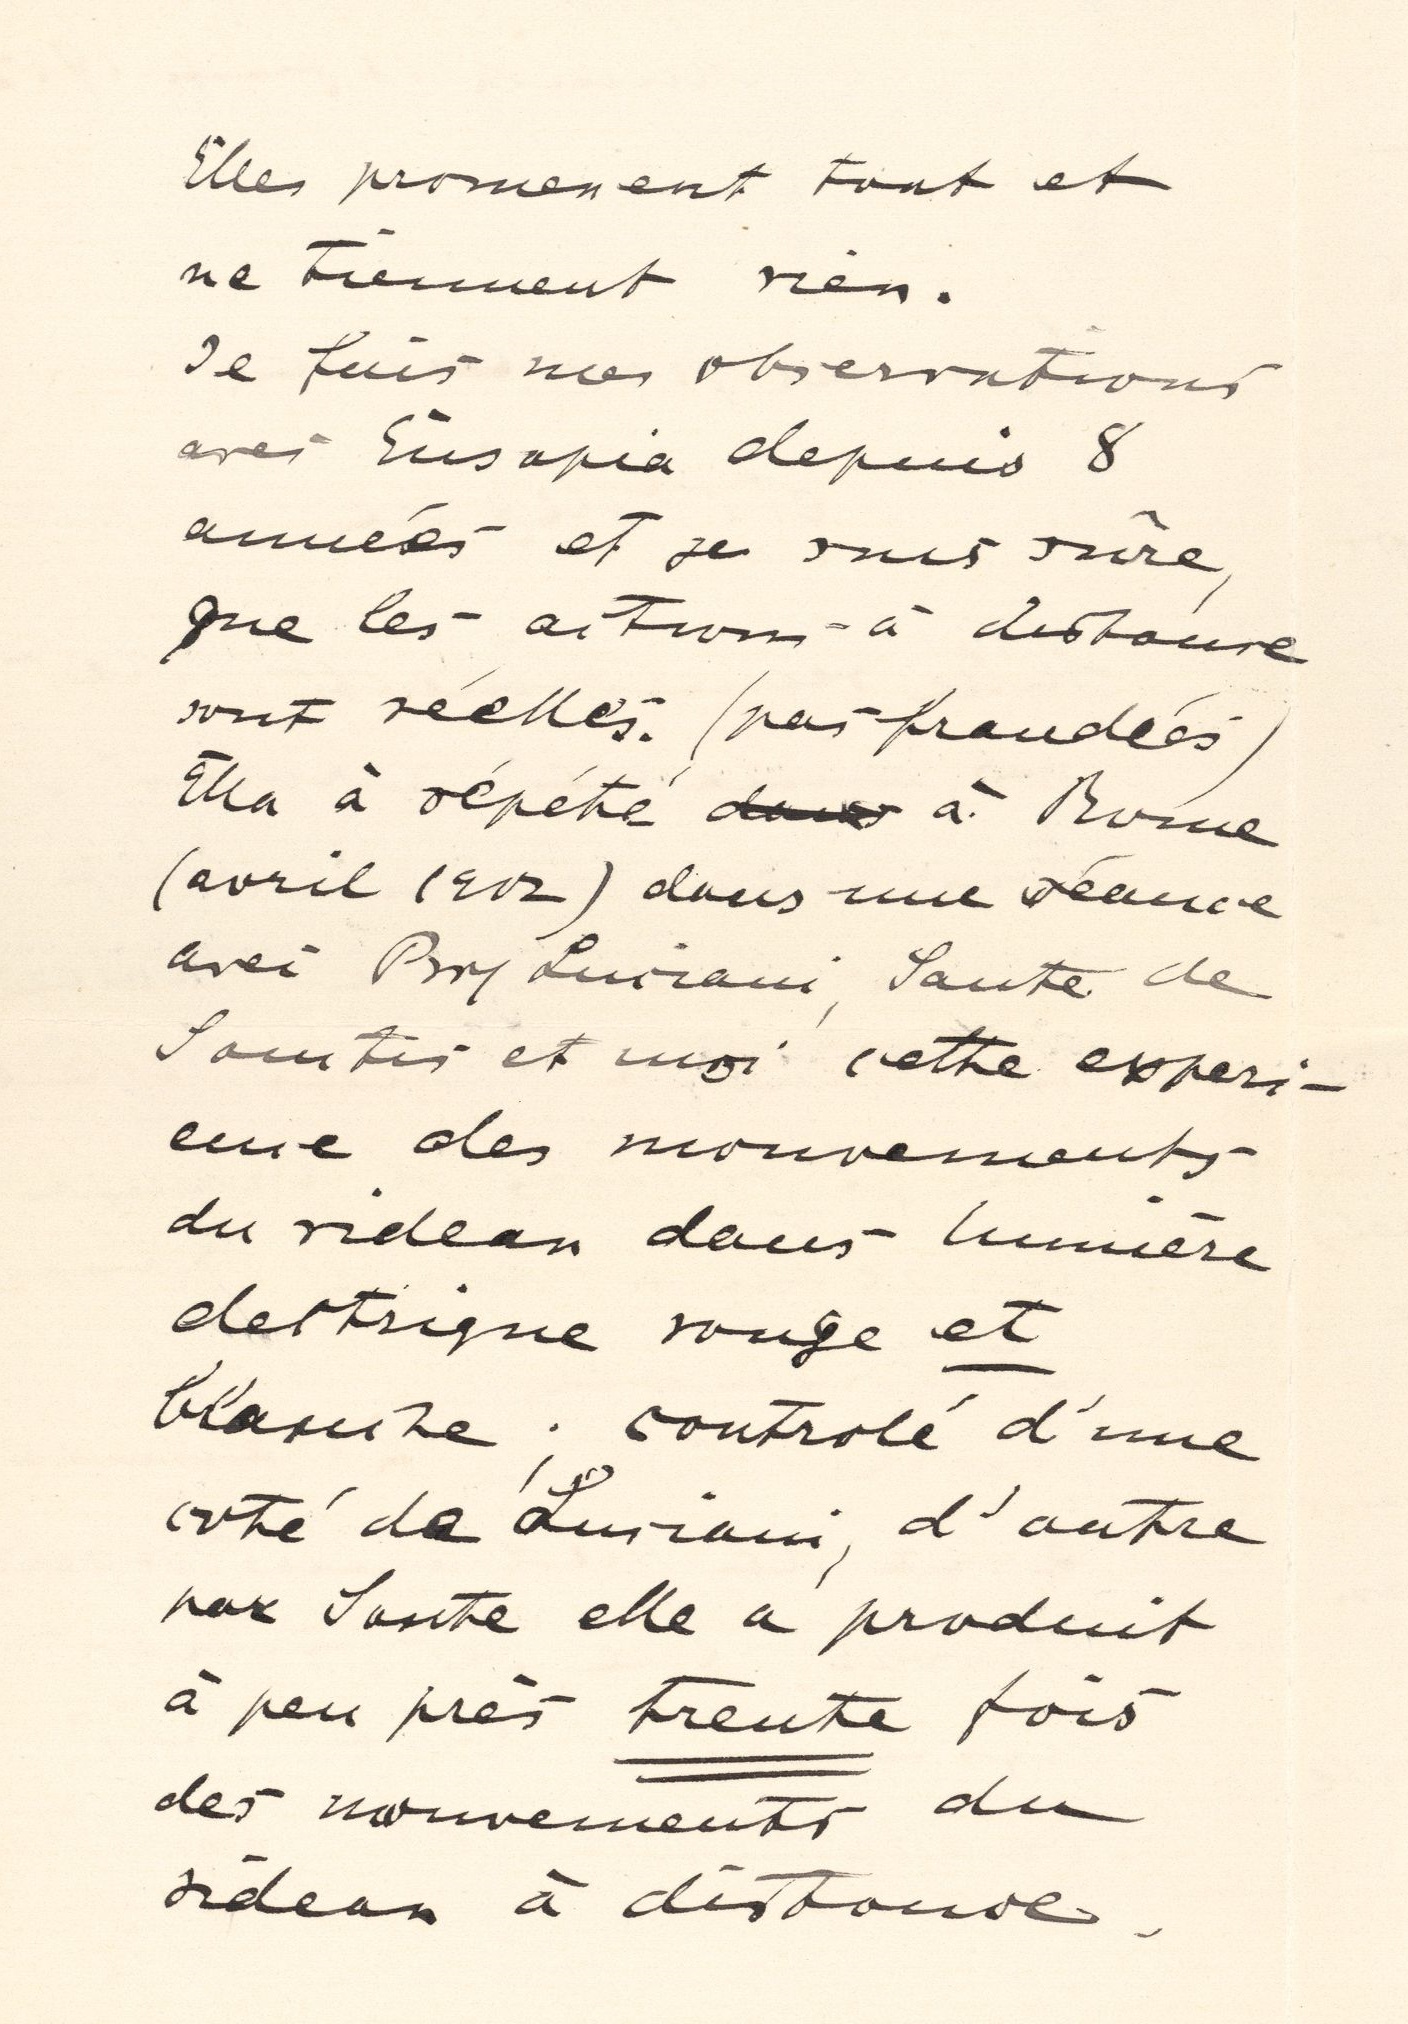 Elles promenent tout et
ne tiennent rien.
Je fais mes observations
avec Eusapia depuis 8
années et je suis sûre,
que les actions à distance
sont réelles. (pas fraudées)
Ella à répété dans à Rome
(avril 1902) dans une séance
avec Prof Luciani, Sante de
Santis et moi cette experi-
ence des mouvements
du rideau dans lumière
electrique rouge et
blanche ; controlé d'une
coté de Luciani, d'autre
par Sante elle a produit
à peu près trente fois
des mouvements du
rideau à distance.